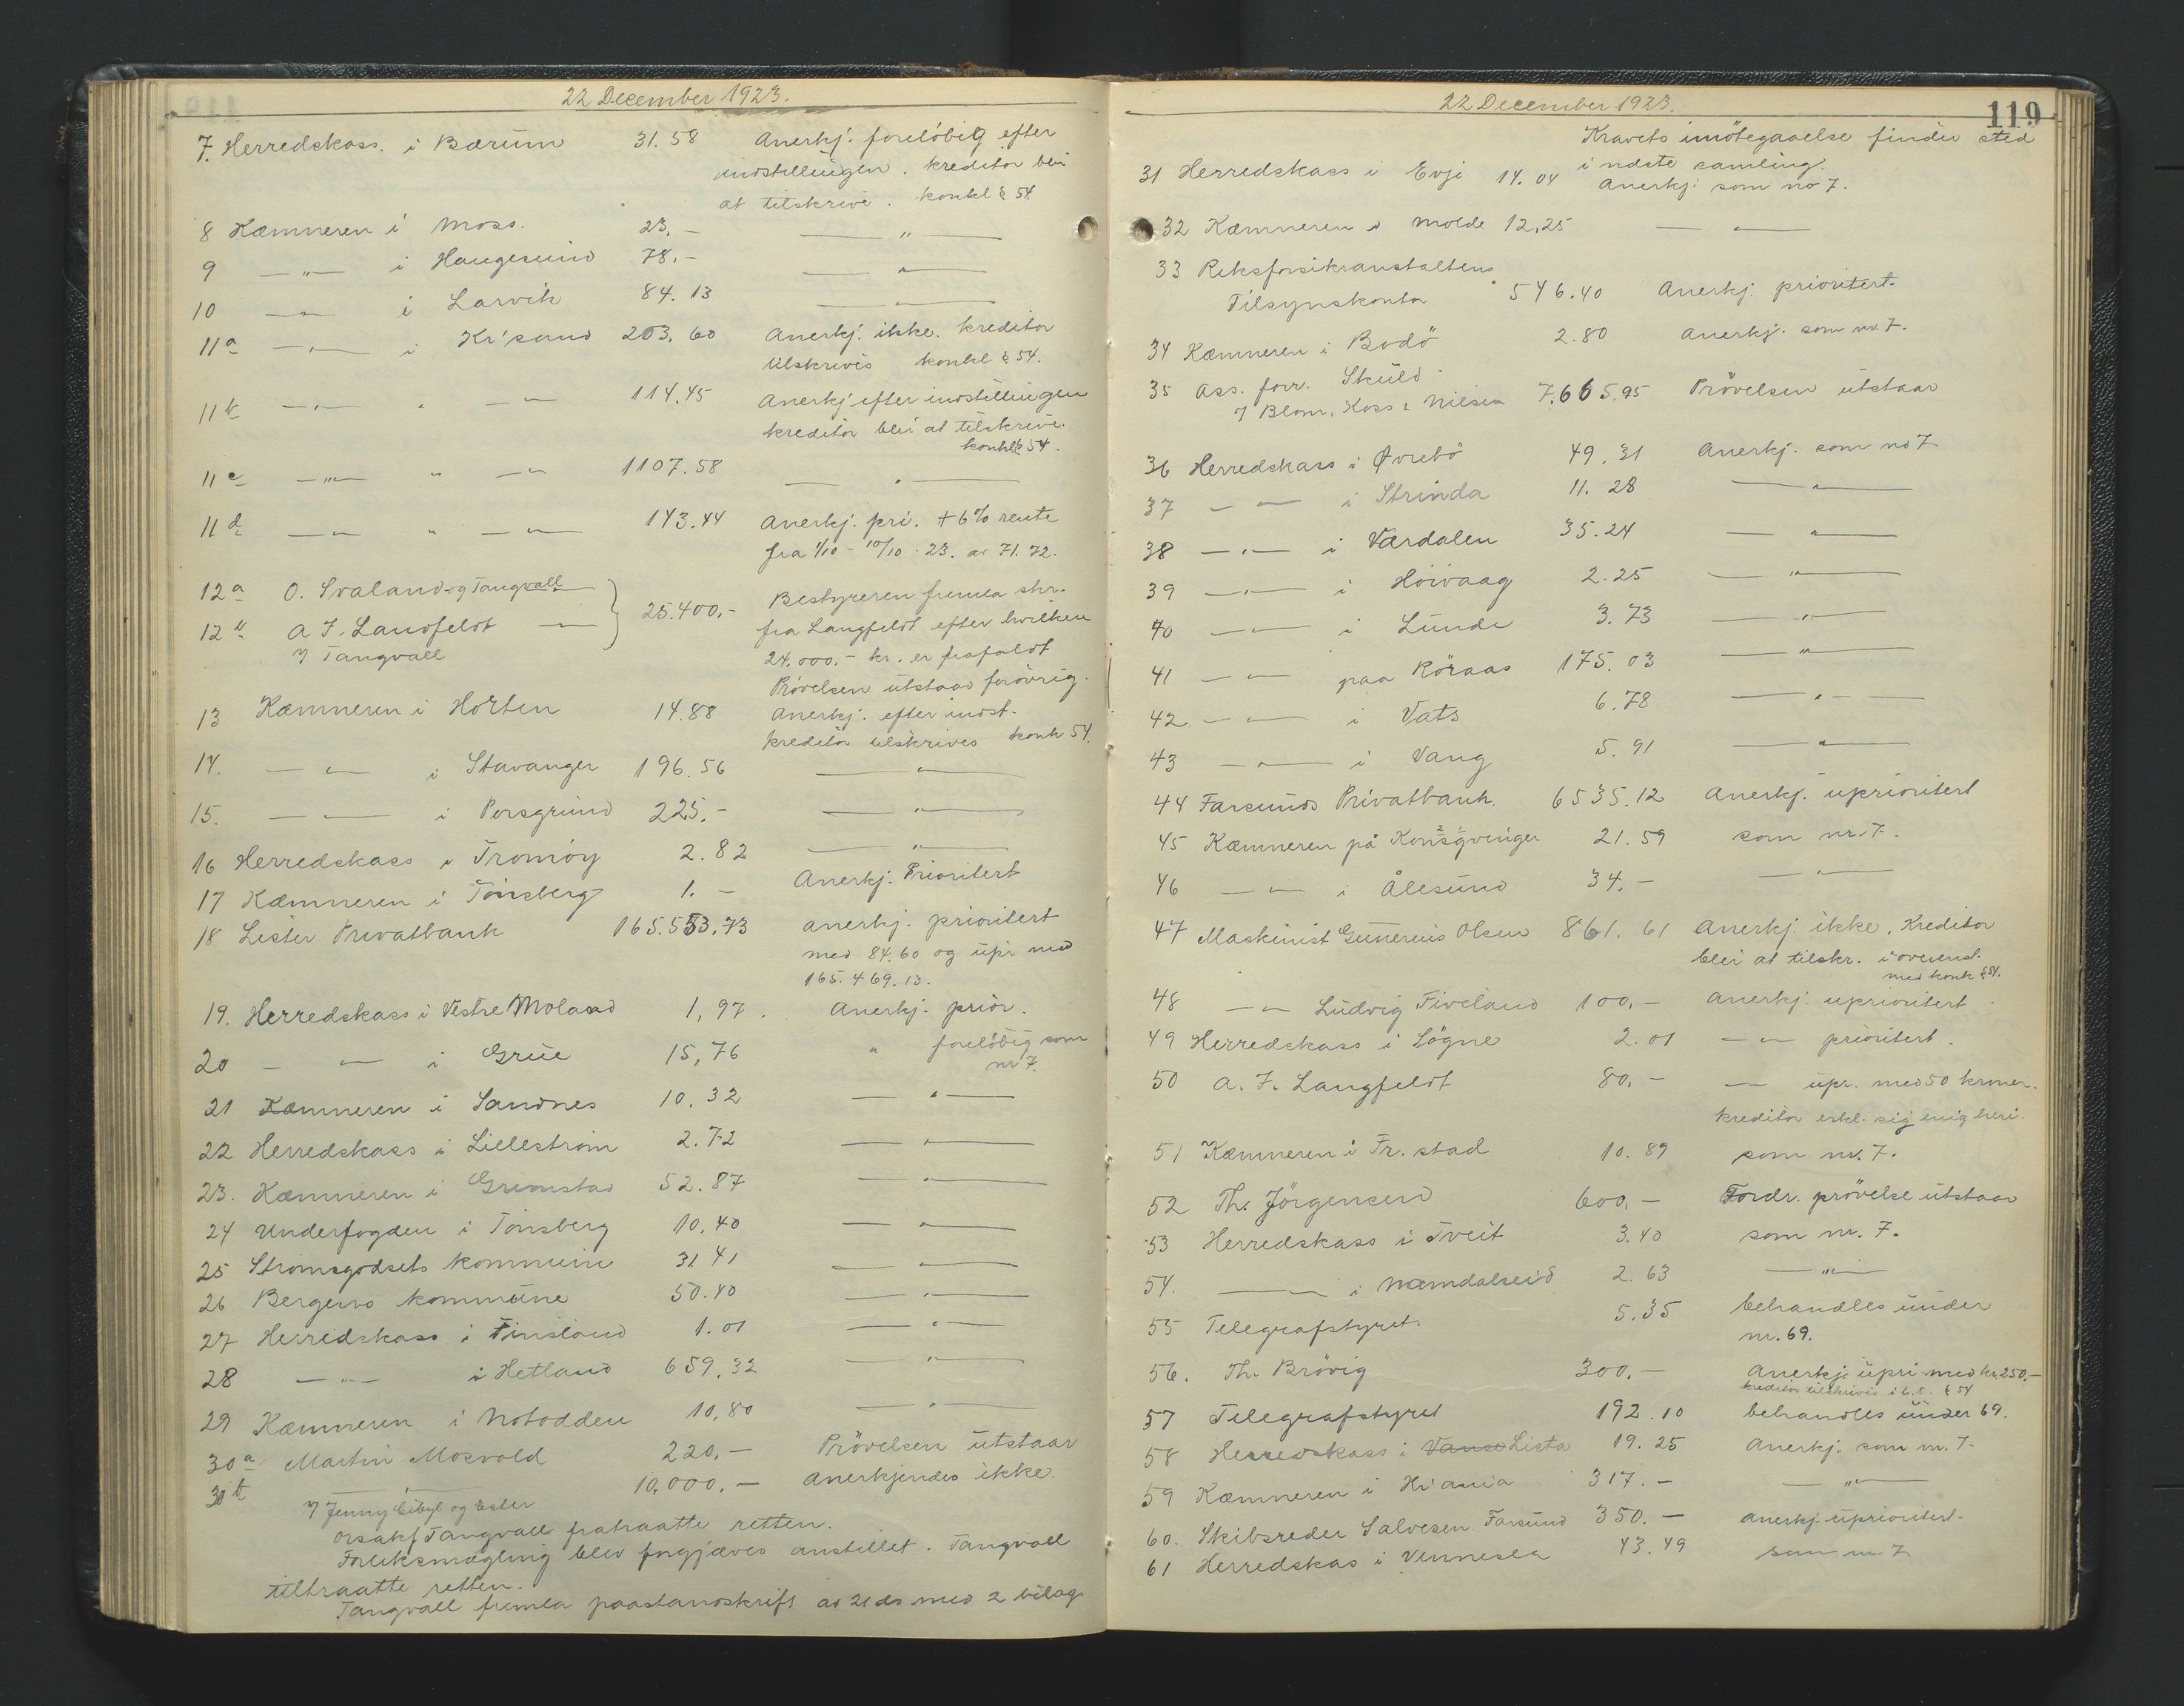 22 December 1923.
7. Herredskass. i Bærum 31.58 Anerkj. foreløbig efter
indstillingen. kreditor blir
at tilskrive. konkl § 54.
8 Kæmneren i Moss. 23.- — " —
9 — " — i Haugesund 78.- — " —
10 — " — i Larvik 84.13 — " —
11a — " — i Kr'sand 203.60 Anerkj. ikke. kreditor
tilskrives konkl § 54.
11b — " — " — " — 114.45 Anerkj efter indstillingen
kreditor blir at tilskrive.
konkl § 54.
11c — " — " — " — 1107.58 — " —
11d — " — " — " — 143.44 Anerkj. pri. + 6% rente
fra 1/10 - 10/10 - 23. av 71.72.
12a O. Svaland og Tangvall 25.400,- Bestyreren fremla skr.
12b A F. Langfeldt — " — fra Langfeldt efter hvilken
Tangvall 24.000.- kr. er frafaldt
Prøvelsen utstaar forøvrig.
13 Kæmneren i Horten 14.88 Anerkj. efter indst.
kreditor tilskrives konk 54.
14. — " — i Stavanger 196.56 — " —
15. — " — i Porsgrund 225.- — " —
16 Herredskass i Tromøy 2.82 — " —
17 Kæmneren i Tönsberg 1.- Anerkj. Prioritert
18 Lister Privatbank 165.553.73 anerkj. prioritert
med 84.60 og upr med
165.469.13.
19. Herredskass i Vestre Moland 1,97. Anerkj. prior.
20 — " — i Grue 15,76 " foreløbig som
nr 7.
21 Kæmneren i Sandnes 10.32 — " —
22 Herredskass i Lilleström 2.72 — " —
23. Kæmneren i Grimstad 52.87 — " —
24 Underfogden i Tönsberg 10,40 — " —
25 Strömsgodsets kommune 31.41 — " —
26 Bergens kommune 50.40 — " —
27 Herredskass i Finsland 1.01 — " —
28 — " — i Hetland 659,32 — " —
29 Kæmneren i Notodden 10,80 — " —
30a Martin Mosvold 220,- Prövelsen utstaar
30b — " — 10,000,- anerkjendes ikke.
Jenny Eibyl og Ester
Orsakf Tangvall fratraatte retten.
Forliksmægling blev forgjæves anstillet. Tangvall
tiltraatte retten.
Tangvall fremla paastandskrift av 21 ds med 2 bilag
22 December 1923. 119
Kravets imötegaaelse finder sted
i næste samling.
31 Herredskass i Evje 14.04 Anerkj. som no 7.
32 Kæmneren i Molde 12,25 — " —
33 Riksforsikranstaltens
Tilsynskontor 546.40 Anerkj. prioritert.
34 Kæmneren i Bodö 2.80 Anerkj. som nr. 7.
35 Ass. forr. Skuld
Blom, Koss & Nilsen 7.665.95 Prövelsen utstaar
36 Herredskass i Øvrebö 49.31 Anerkj. som no 7
37 — " — i Strinda 11.28 — " —
38 — " — i Værdalen 35.24 — " —
39 — " — i Höivaag 2.25 — " —
40 — " — i Lunde 3.73 — " —
41 — " — paa Röraas 175.03 — " —
42 — " — i Vats 6.78 — " —
43 — " — i Vang 5.91 — " —
44 Farsunds Privatbank. 6535.12 Anerkj. uprioritert
45 Kæmneren på Konsgvinger 21.59 som nr. 7.
46 — " — i Ålesund 34.- — " —
47 Maskinist Gunerius Olsen 861.61 Anerkj. ikke. Kreditor
blir at tilskr. i overenst.
med konk § 54.
48 — " — Ludvig Fiveland 100,- Anerkj. uprioritert.
49 Herredskass i Sögne 2.01 — " — prioritert.
50 A. F. Langfeldt 80,- — " — upr. med 50 kroner.
kreditor erkl. sig enig heri.
51 Kæmneren i Fr.stad 10.89 som nr. 7.
52 Th. Jörgensen 600,- Fordr. prövelse utstaar
53 Herredskass i Tveit 3.40 som nr. 7.
54. — " — i Namdalseid 2.63 — " —
55 Telegrafstyret. 5.35 behandles under
nr. 69.
56. Th. Brövig 300,- Anerkj. upri med kr. 250.-
kreditor tilskrives § 54
57 Telegrafstyret 192.10 behandles under 69.
58 Herredskass i Vanse Lista 19.25 Anerkj. som nr. 7.
59 Kæmneren i Kr'ania 317.- — " —
60. Skibsreder Salvesen Farsund 350.- anerkj. uprioritert.
61 Herredskas i Vennesla 43.49 som nr. 7